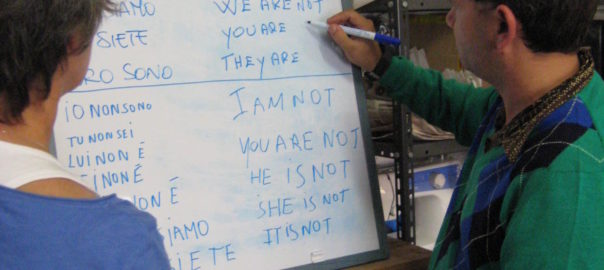 IAMO WE ARE NOT
SIETE YOU ARE
RO SONO THEY ARE
iO NON SONO I AM NOT
TU NON SEI YOU ARE NOT
LUI NON É HE iS NOT
i NON É SHE iS NOT
NON É IT iS NOT
iAMO
iETE